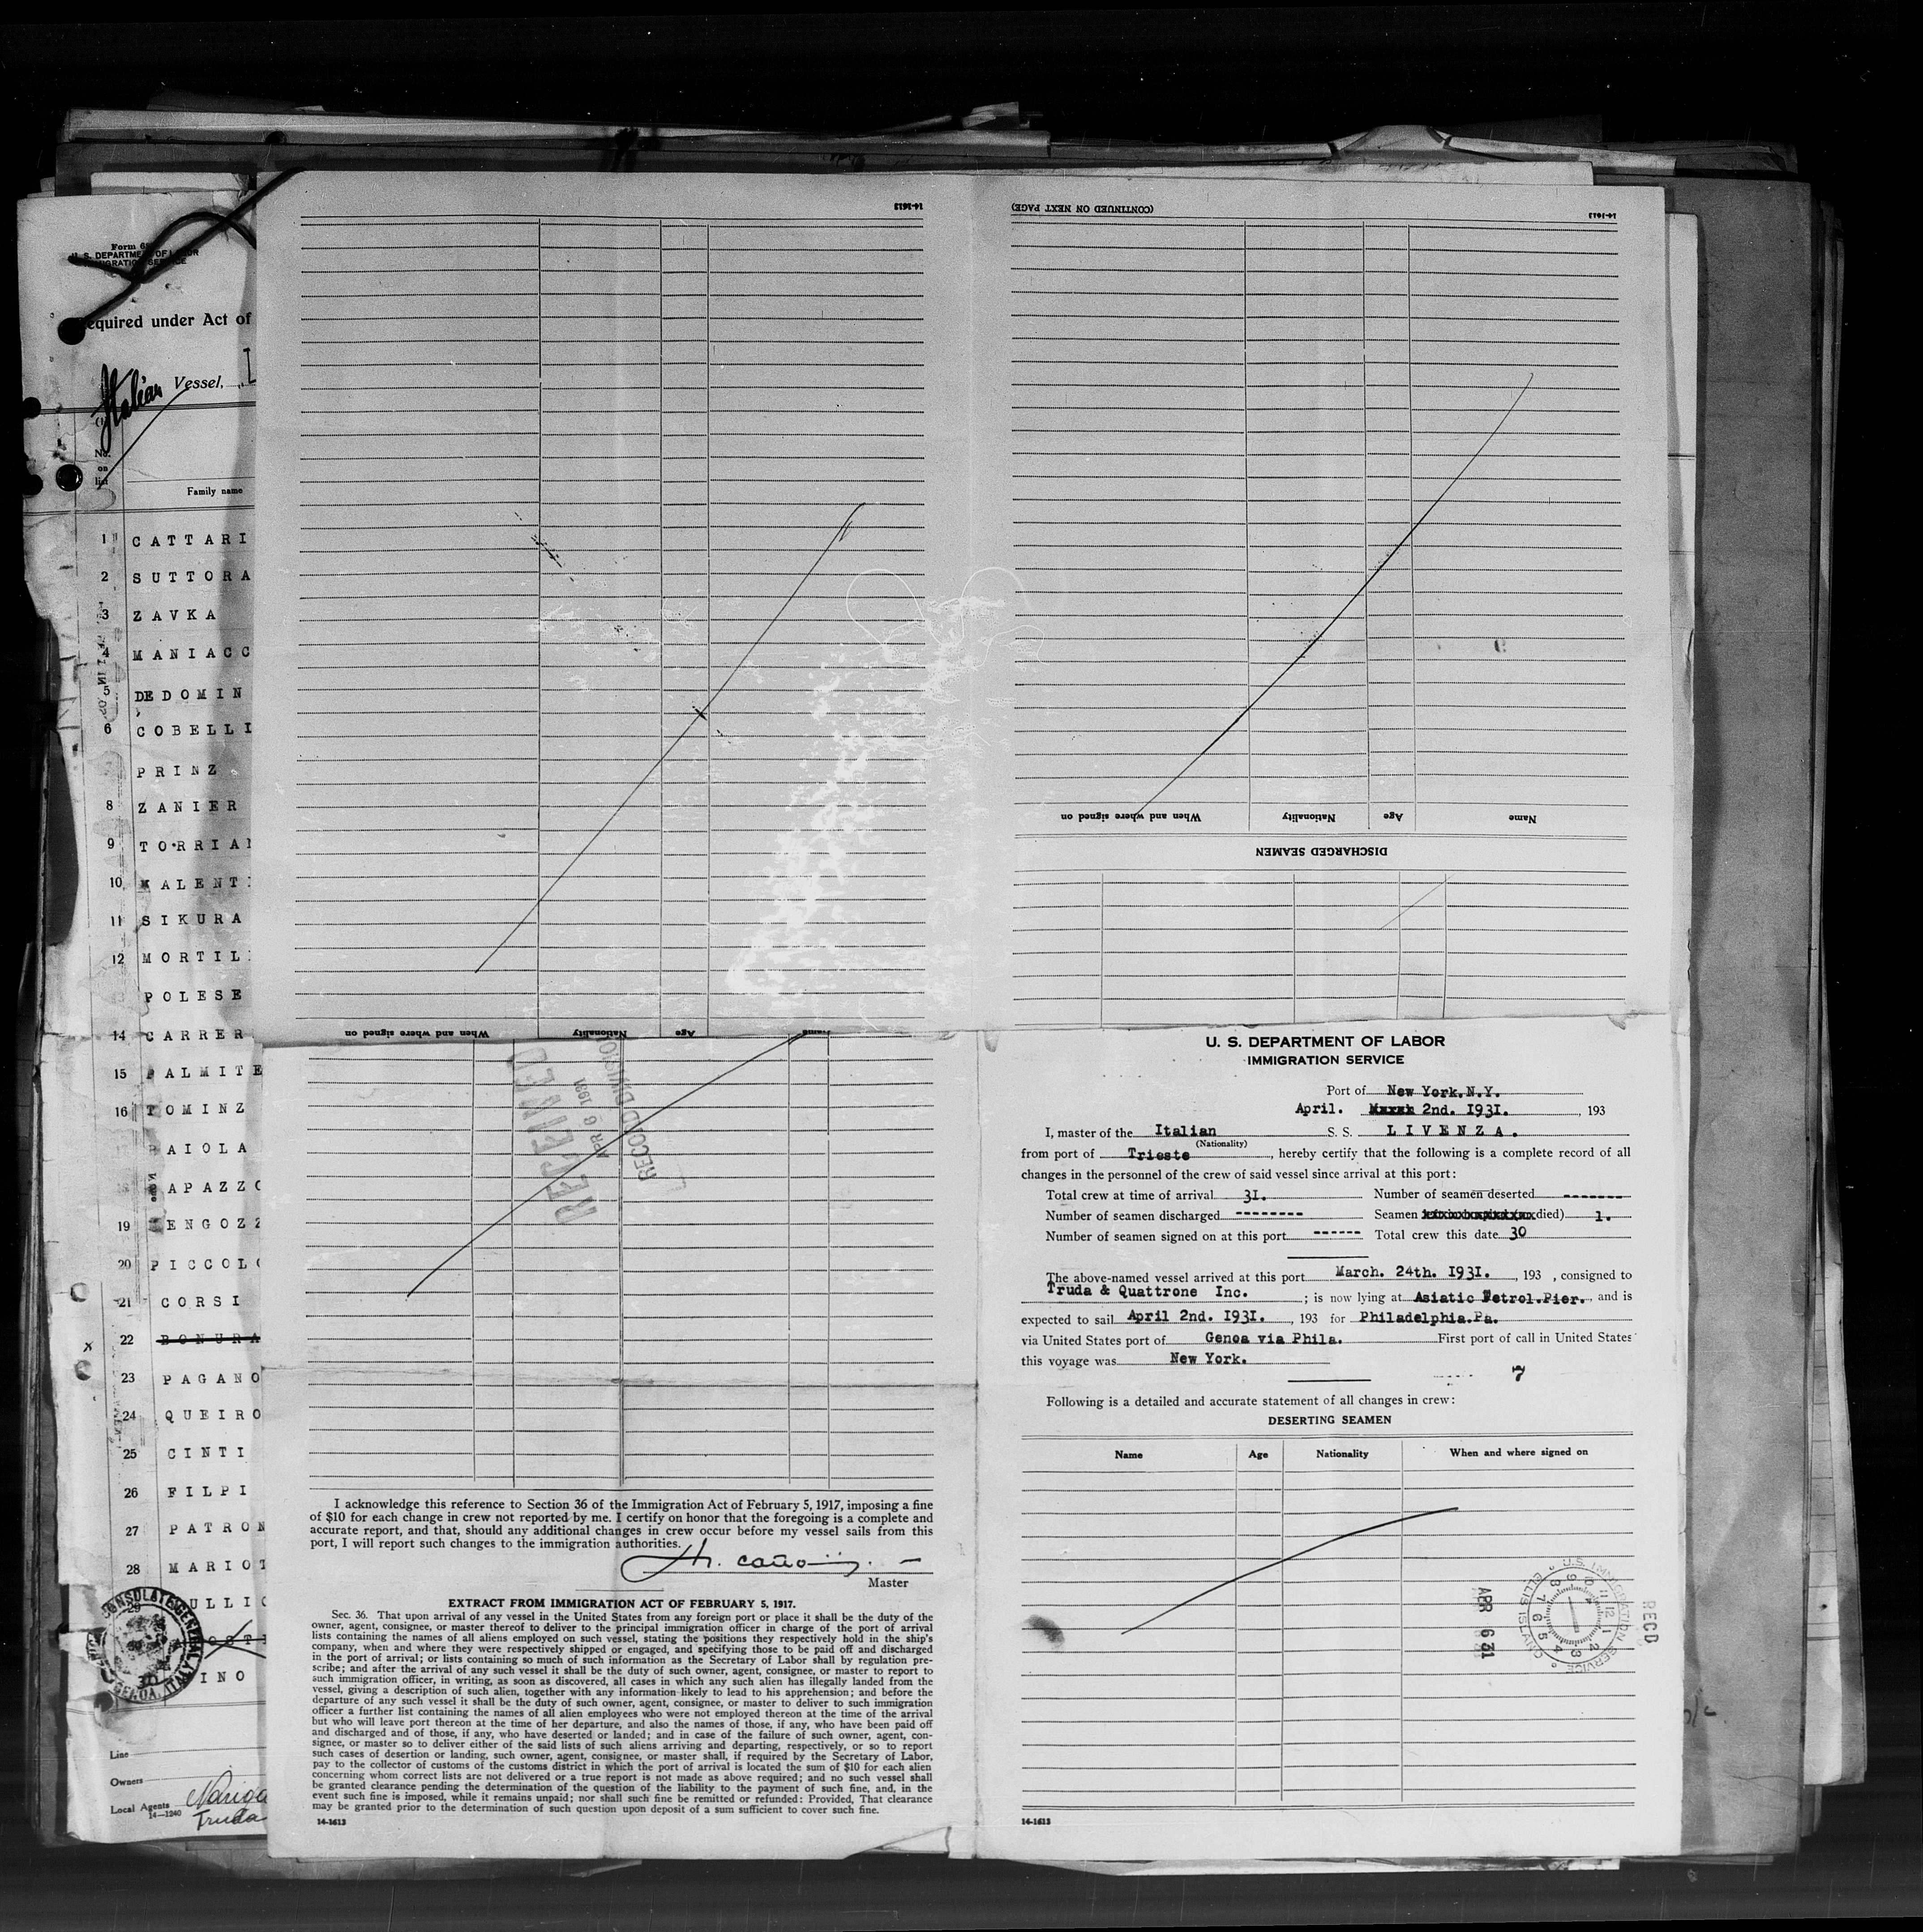 Form 6
U. S. DEPARTMENT OF LABOR
IMMIGRATION SERVICE
equired under Act of
Italian Vessel,
No.
on
list
Family name
1 CATTARI
2 SUTTORA
3 ZAVKA
4 MANIACC
5 DE DOMIN
6 COBELLI
PRINZ
8 ZANIER
9 TORRIAN
10 KALENT
11 SIKURA
12 MORTIL
POLESE
14 CARRER
15 PALMITE
16 TOMINZ
AIOLA
APAZZO
19 ENGOZZ
20 PICCOLO
21 CORSI
22 BONURA
23 PAGANO
24 QUEIRO
25 CINTI
26 FILPI
27 PATRON
28 MARIOT
ULLIO
INO
Line
Owners
Local Agents
14—1240
Truda
14-1613
When and where signed on Nationality Age Name
(CONTINUED ON NEXT PAGE)
14-1613
When and where signed on Nationality Age Name
DISCHARGED SEAMEN
RECEIVED
APR 6 1931
RECORD DIVISION
I acknowledge this reference to Section 36 of the Immigration Act of February 5, 1917, imposing a fine
of $10 for each change in crew not reported by me. I certify on honor that the foregoing is a complete and
accurate report, and that, should any additional changes in crew occur before my vessel sails from this
port, I will report such changes to the immigration authorities.
Master
EXTRACT FROM IMMIGRATION ACT OF FEBRUARY 5, 1917.
Sec. 36. That upon arrival of any vessel in the United States from any foreign port or place it shall be the duty of the
owner, agent, consignee, or master thereof to deliver to the principal immigration officer in charge of the port of arrival
lists containing the names of all aliens employed on such vessel, stating the positions they respectively hold in the ship's
company, when and where they were respectively shipped or engaged, and specifying those to be paid off and discharged
in the port of arrival; or lists containing so much of such information as the Secretary of Labor shall by regulation pre-
scribe; and after the arrival of any such vessel it shall be the duty of such owner, agent, consignee, or master to report to
such immigration officer, in writing, as soon as discovered, all cases in which any such alien has illegally landed from the
vessel, giving a description of such alien, together with any information likely to lead to his apprehension; and before the
departure of any such vessel it shall be the duty of such owner, agent, consignee, or master to deliver to such immigration
officer a further list containing the names of all alien employees who were not employed thereon at the time of the arrival
but who will leave port thereon at the time of her departure, and also the names of those, if any, who have been paid off
and discharged and of those, if any, who have deserted or landed; and in case of the failure of such owner, agent, con-
signee, or master so to deliver either of the said lists of such aliens arriving and departing, respectively, or so to report
such cases of desertion or landing, such owner, agent, consignee, or master shall, if required by the Secretary of Labor,
pay to the collector of customs of the customs district in which the port of arrival is located the sum of $10 for each alien
concerning whom correct lists are not delivered or a true report is not made as above required; and no such vessel shall
be granted clearance pending the determination of the question of the liability to the payment of such fine, and, in the
event such fine is imposed, while it remains unpaid; nor shall such fine be remitted or refunded: Provided, That clearance
may be granted prior to the determination of such question upon deposit of a sum sufficient to cover such fine.
14-1613
U. S. DEPARTMENT OF LABOR
IMMIGRATION SERVICE
Port of New York.N.Y.
April. 2nd. 1931. , 193
I, master of the Italian S. S. LIVENZA.
(Nationality)
from port of Trieste , hereby certify that the following is a complete record of all
changes in the personnel of the crew of said vessel since arrival at this port:
Total crew at time of arrival 31. Number of seamen deserted -------
Number of seamen discharged -------- Seamen died) 1.
Number of seamen signed on at this port ------ Total crew this date 30
The above-named vessel arrived at this port March. 24th. 1931. , 193 , consigned to
Truda & Quattrone Inc. ; is now lying at Asiatic Petrol.Pier. , and is
expected to sail April 2nd. 1931. , 193 for Philadelphia.Pa.
via United States port of Genoa via Phila. First port of call in United States
this voyage was New York.
7
Following is a detailed and accurate statement of all changes in crew:
DESERTING SEAMEN
Name Age Nationality When and where signed on
RECD
U.S. IMMIGRATION SERVICE
ELLIS ISLAND
APR 6 31
14-1613